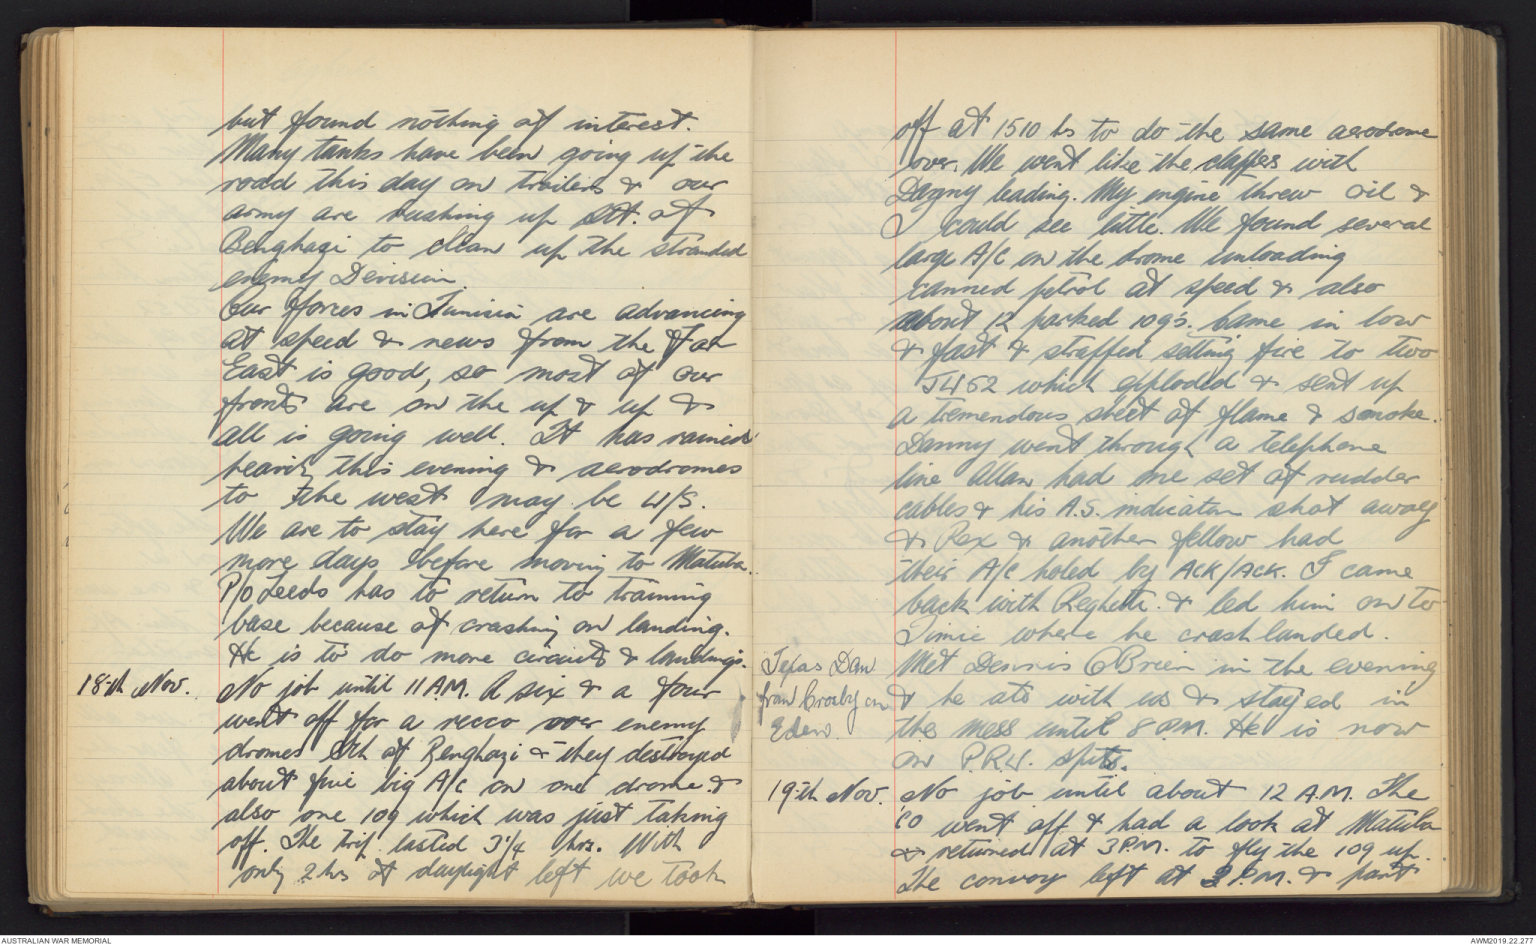 but found nothing of interest.
Many tanks have been going up the
road this day on trailers & our
army are rushing up Sth. of
Benghazi to clean up the stranded
enemy Devision.
Our forces in Tunisia are advancing
at speed & news from the Far
East is good, so most of our
fronts are on the up & up &
all is going well. It has rained
heavily this evening & aerodromes
to the west may be U/S.
We are to stay here for a few
more days before moving to Matuba.
P/O Leeds has to return to training
base because of crashing on landing.
He is to do more circuits & landings.
18th Nov. No job until 11 A.M. A six & a four
went off for a recco over enemy
dromes Sth of Benghazi & they destroyed
about five big A/C on one drome &
also one 109 which was just taking
off. The trip lasted 3 1/4 hrs. With
only 2 hrs of daylight left we took
off at 1510 hs to do the same aerodrome
over. We went like the clappers with
Danny leading. My engine threw oil &
I could see little. We found several
large A/C on the drome unloading
canned petrol at speed & also
about 12 parked 109's. Came in low
& fast & straffed setting fire to two
JU52 which exploded & sent up
a tremendous sheet of flame & smoke.
Danny went through a telephone
line Allan had one set of rudder
cables & his A.S. indicator shot away
& Rex & another fellow had
their A/C holed by ACK/ACK. I came
back with & led him on to
Timie where he crash landed.
Texas Dan
from Crosby on
Eden.
Met Dennis O'Brien in the evening
& he ate with us & stayed in
the mess until 8 P.M. He is now
on P.R.U. spits.
19th Nov. No job until about 12 A.M. The
CO went off & had a look at Matuba
& returned at 3 P.M. to fly the 109 up.
The convoy left at 3 P.M. & part
AUSTRALIAN WAR MEMORIAL
AWM2019.22.277